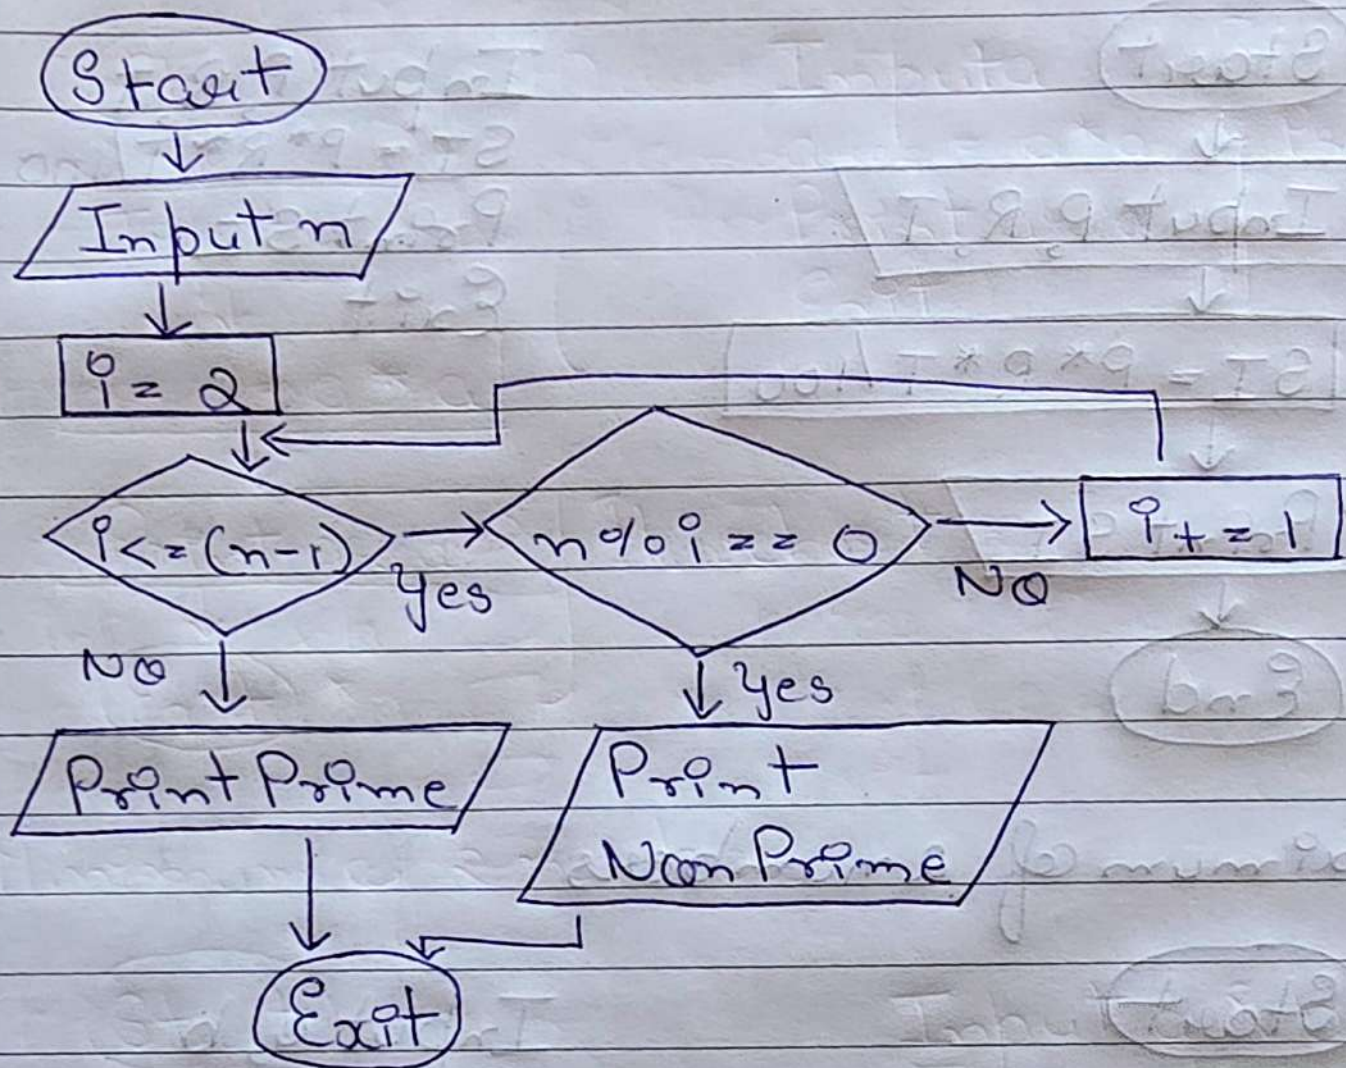 Start
Input n
i = 2
i <= (n-1)
Yes
n % i == 0
No
i += 1
No
Yes
Print Prime
Print
Non Prime
Exit